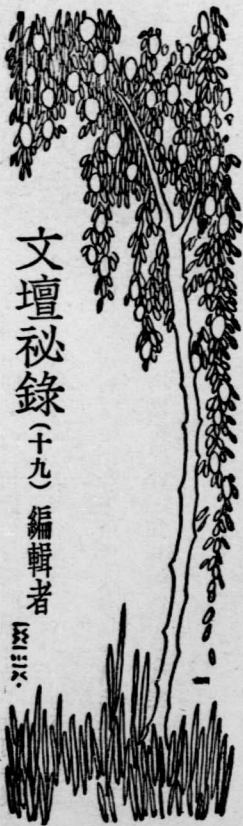 文壇祕錄(十九) 編輯者